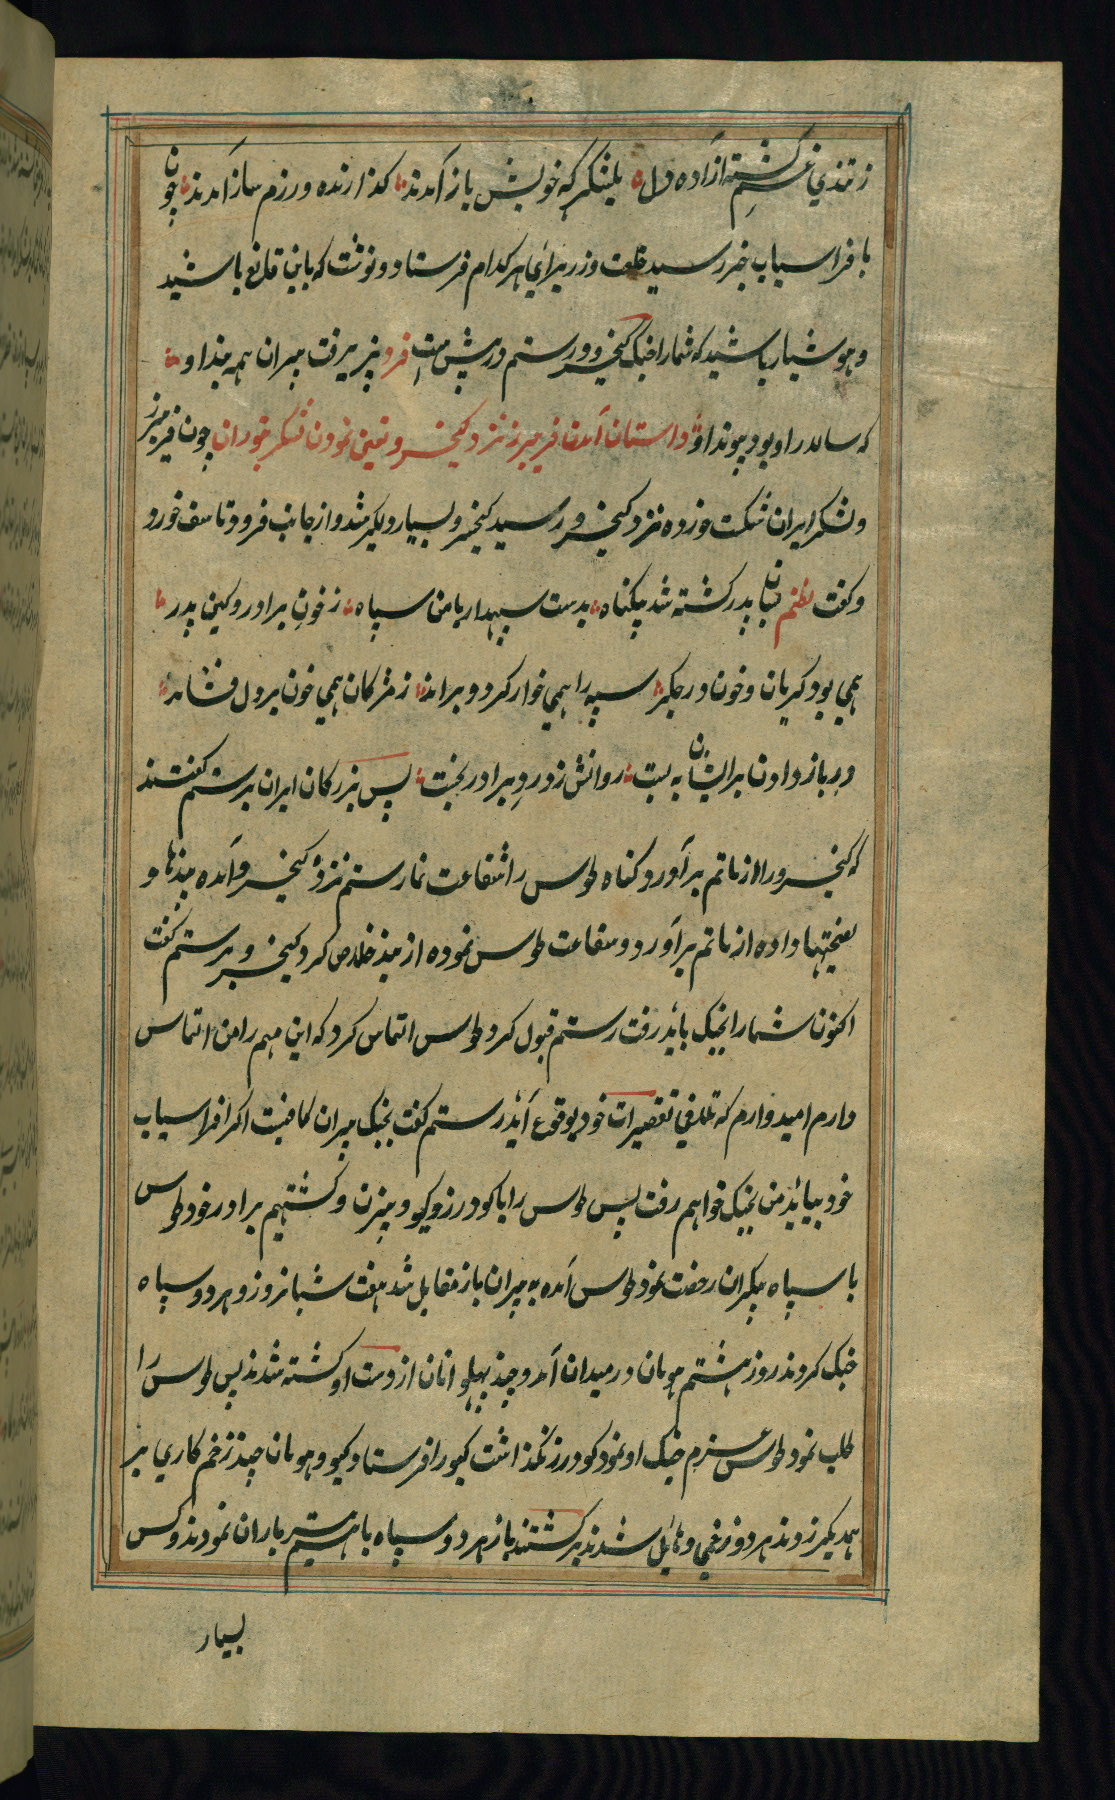 ز تندی غمی گشته از آده دل بلشکر که خویش باز آمدند گدازنده و رزم ساز آمدند چون
بافراسیاب خبر رسید خلعت و زر برای هر کدام فرستاد و نوشت که باین قانع باشید
و هوشیار باشید که شما را جنگ کیخسرو و رستم در پیش است فرد پذیرفت پیران همه پند او
که سالار او بود و پیوند او داستان آمدن فریبرز نزد کیخسرو و تعین نمودن لشکر بتوران چون فریبرز
و لشکر ایران شکست خورده نزد کیخسرو رسید کیخسرو بسیار دلگیر شد و از جانب فرود تاسف خورد
و گفت نظم بسان پدر کشته شد بیگناه بدست سپهدار با من سپاه ز خون برادر و کین پدر
همی بود گریان و خون در جگر سپه را همی خوار کرد و براند ز مژگان همی خون بر دل فشاند
در بار دادن بر ایشان به بست روانش ز درد برادر بخست پس بزرگان ایران برستم گفتند
که کیخسرو را از ماتم برآور و گناه طوس را شفاعت نما رستم نزد کیخسرو آمده پندها و
نصیحتها داده از ماتم برآورد و شفاعت طوس نموده از بند خلاص کرد کیخسرو برستم گفت
اکنون شما را بجنگ باید رفت رستم قبول کرد طوس التماس کرد که این مهم را من التماس
دارم امیدوارم که تلافی تقصیرات خود بوقوع آید رستم گفت بجنگ پیران کافیت اگر افراسیاب
خود بیاید من بجنگ خواهم رفت پس طوس را با گودرز و گیو و بیژن و گستهم برادر خود طوس
با سپاه بیکران رخصت نمود طوس آمده به پیران باز مقابل شد هفت شبانروز و هر دو سپاه
جنگ کردند روز هشتم هومان در میدان آمد و چند پهلوانان از دست او کشته شدند پس طوس را
طلب نمود طوس عزم جنگ او نمود گودرز نگذاشت گیو را فرستاد گیو و هومان چند زخم کاری بر
همدیگر زدند هر دو زخمی و هایل شدند برگشتند باز هر دو سپاه باهم تیرباران نمودند و کس
بسیار